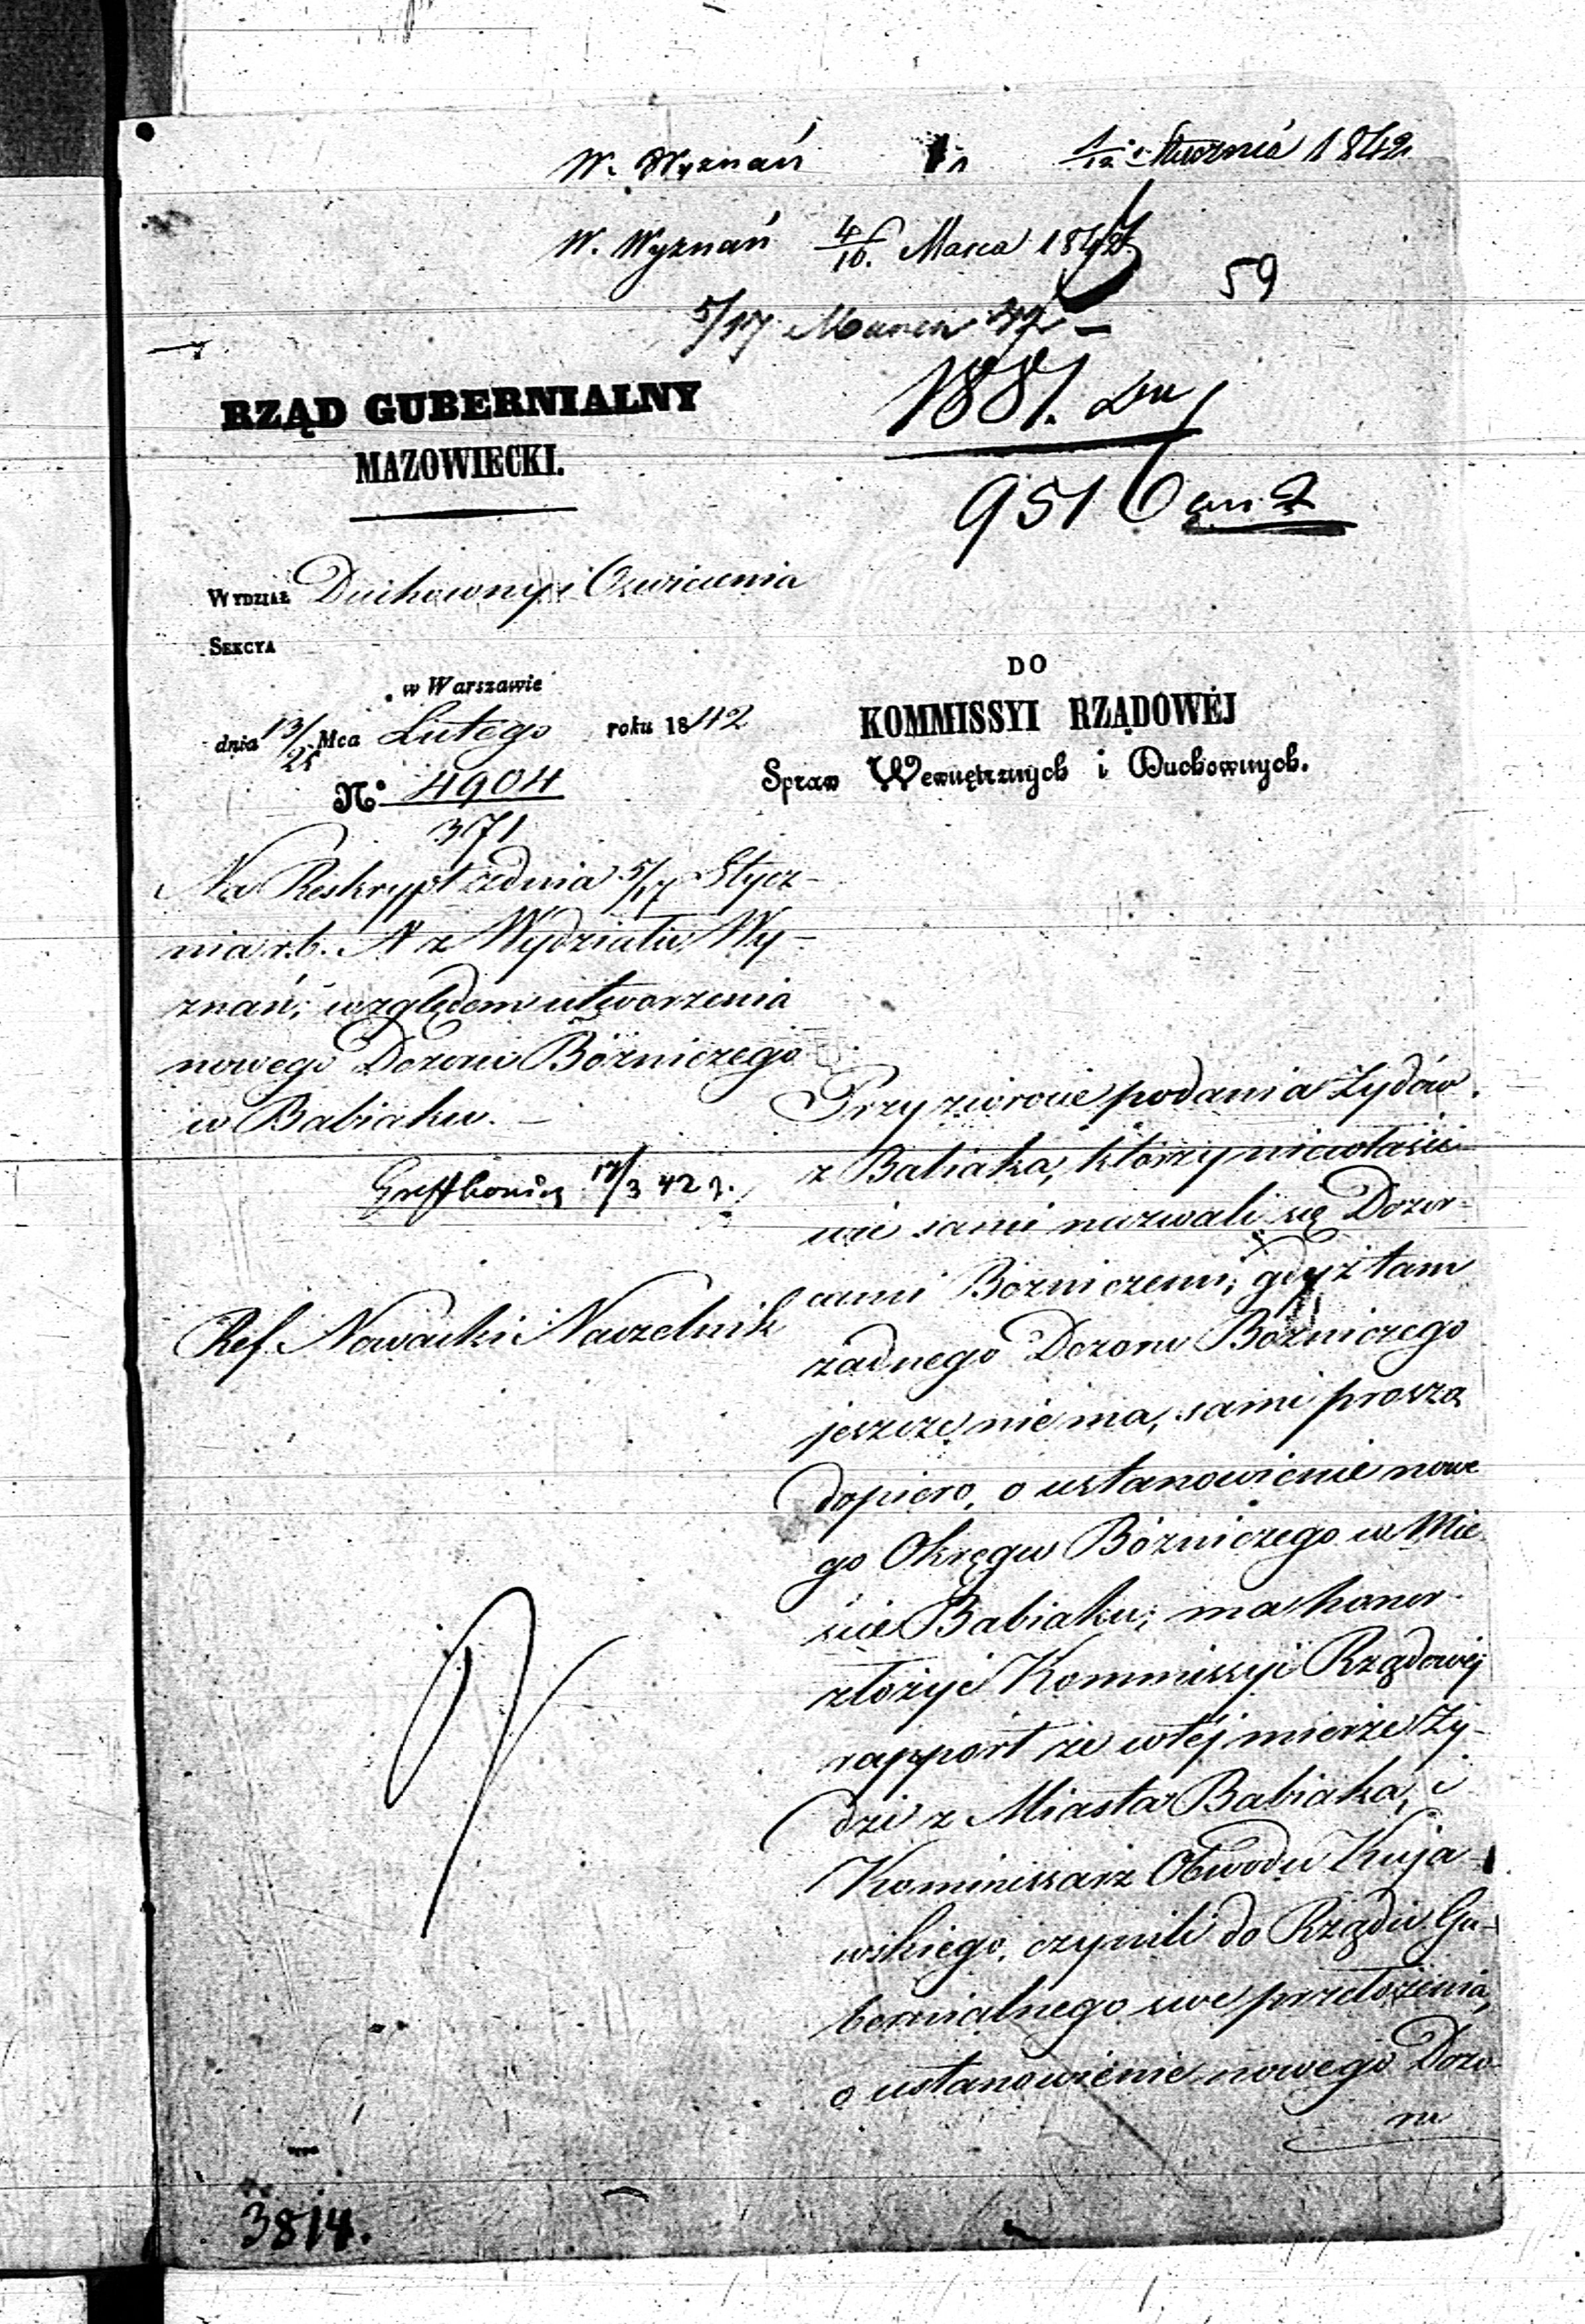 W. Wyznań
1842
W. Wyznań 4/16. Marca 1842
59
5/17 Marca 42
1881.
9516
RZĄD GUBERNIALNY
MAZOWIECKI.
WYDZIAŁ Duchowny i Oświecenia
SEKCYA
w Warszawie
dnia 13/25 Mca Lutego roku 1842
N° 4904
371
DO
KOMMISSYI RZĄDOWÉJ
Spraw Wewnętrznych i Duchownych.
Na Reskrypt z dnia 5/17 Stycz-
nia r.b. N z Wydziału Wy-
znań, względem utworzenia
nowego Dozoru Bóżniczego
w Babiaku. –
17/3 42 r.
Ref. Nowacki Naczelnik
Przy zwrocie podania Żydów
z Babiaka, którzy niewłaści-
wie sami nazwali się Dozor-
cami Bóżniczemi, gdyż tam
żadnego Dozoru Bóżniczego
jeszcze nie ma, sami proszą
dopiero, o ustanowienie nowe
go Okręgu Bóżniczego w Mie
ście Babiaku; ma honor
złożyć Kommissyi Rządowéj
rapport że w téj mierze Ży-
dzi z Miasta Babiaka, i
Kommissarz Obwodu Kuja-
wskiego, czynili do Rządu Gu-
bernialnego swe przełożenia,
o ustanowienie nowego Dozo-
ru
3814.